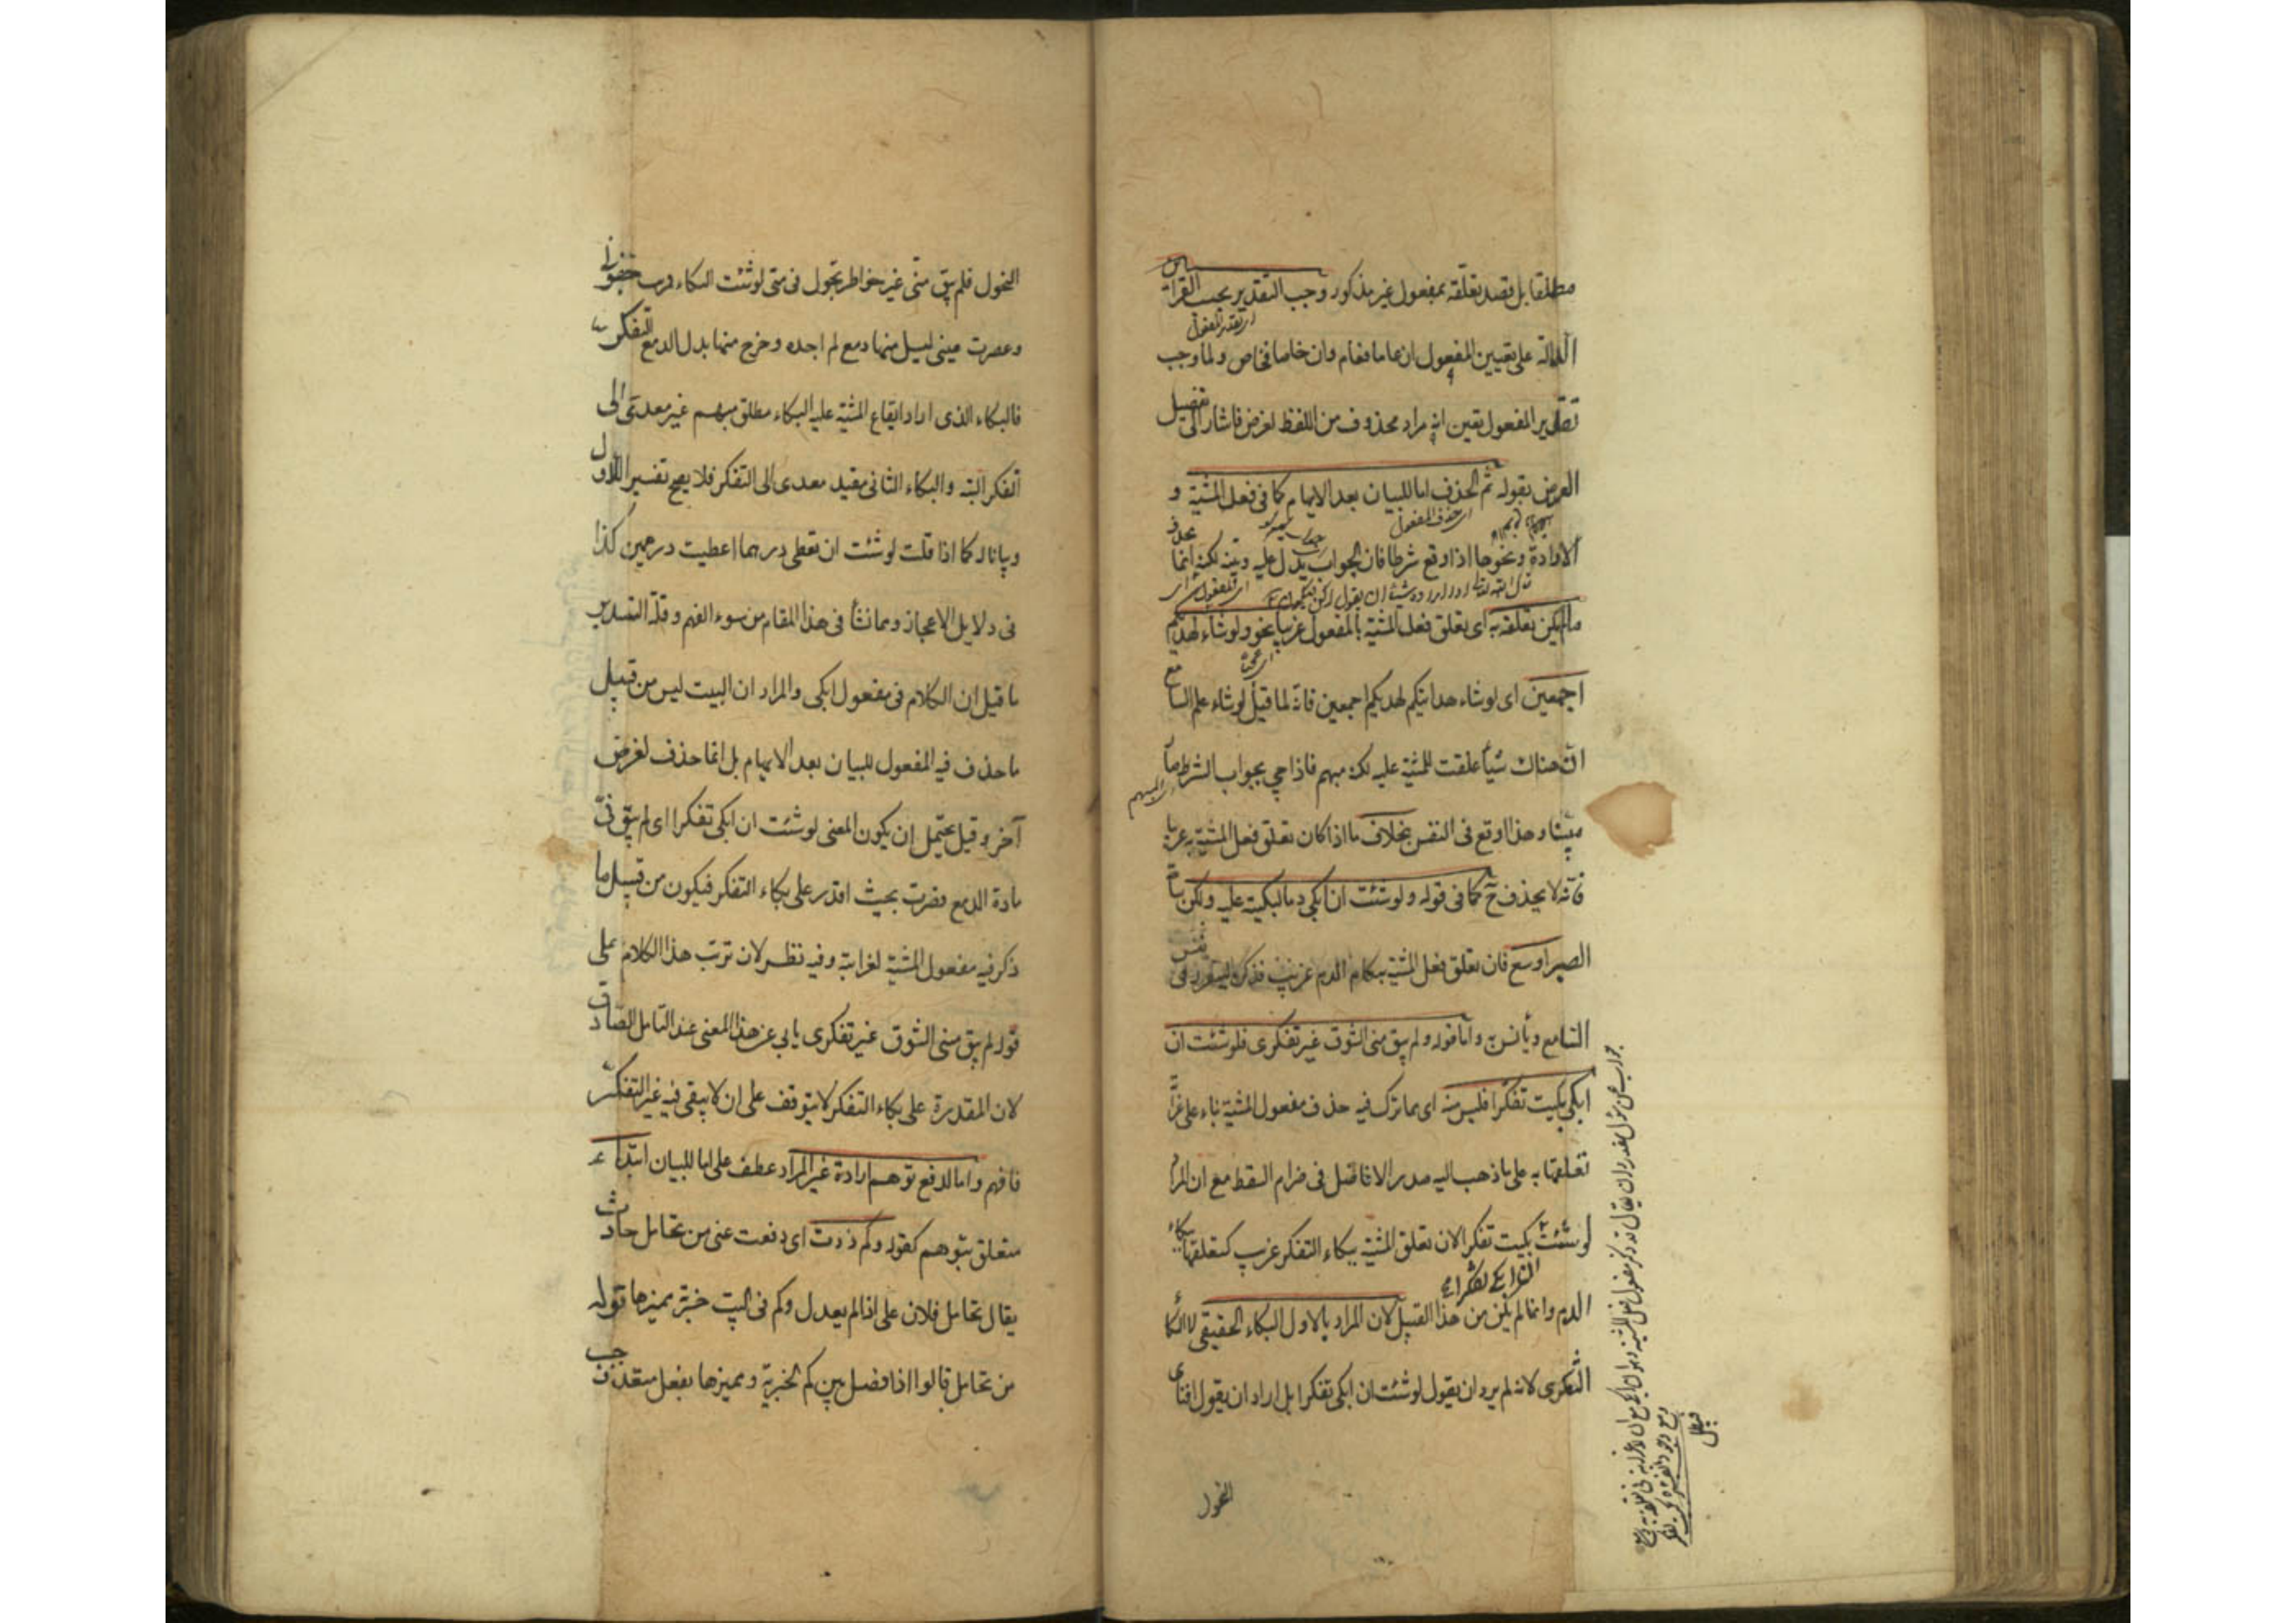 مطلقا بل قصد تعلقه بمفعول غير مذكور وجب التقدير بحسب القرائن
اى تقدير المفعول
الدالة على تعيين المفعول ان عاما فعام وان خاصا فخاص ولما وجب
تقدير المفعول تعين انه مراد محذوف من اللفظ لغرض فاشار الى تفصيل
الغرض بقوله ثم الحذف اما للبيان بعد الابهام كما فى فعل المشية و
اى حذف المفعول
الارادة ونحوها اذا وقع شرطا فان الجواب يدل عليه ويبينه لكنه انما يحذف
ما لم يكن تعلقه به اى تعلق فعل المشية بالمفعول غريبا نحو ولو شاء لهديكم
اجمعين اى لو شاء هدايتكم لهديكم اجمعين فانه لما قيل لو شاء علم السامع
ان هناك شيأ علقت المشية عليه لكنه مبهم فاذا جئ بجواب الشرط صار
المبهم
مبينا وهذا اوقع فى النفس بخلاف ما اذا كان تعلق فعل المشية به غريبا
فانه لا يحذف ح كما فى قوله ولو شئت ان ابكى دما لبكيته عليه ولكن ساحة
الصبر اوسع فان تعلق فعل المشية ببكاء الدم غريب فذكره ليتقرر فى نفس
السامع ويأنس به واما قوله ولم يبق منى الشوق غير تفكرى فلو شئت ان
ابكى بكيت تفكرا فليس منه اى مما ترك فيه حذف مفعول المشية بناء على غرابة
تعلقها به على ما ذهب اليه صدر الافاضل فى ضرام السقط مع ان المراد
لو شئت بكيت تفكرا لان تعلق المشية ببكاء التفكر غريب كتعلقها ببكاء
الدم وانما لم يكن من هذا القبيل لان المراد بالاول البكاء الحقيقى لا البكاء
التفكرى لانه لم يرد ان يقول لو شئت ان ابكى تفكرا بل اراد ان يقول افنانى
النحول
النحول فلم يبق منى غير خواطر تجول فى حتى لو شئت البكاء فريت جفونى
وعصرت عينى ليسيل منها دمع لم اجده وخرج منها بدل الدمع التفكر
فالبكاء الذى اراد ايقاع المشية عليه البكاء مطلق مبهم غير معدى الى
التفكر البته والبكاء الثانى مقيد معدى الى التفكر فلا يصح تفسيرا للاول
وبيانا له كما اذا قلت لو شئت ان تعطى درهما اعطيت درهمين كذا
فى دلايل الاعجاز ومما نشأ فى هذا المقام من سوء الفهم وقلة التدبر
ما قيل ان الكلام فى مفعول ابكى والمراد ان البيت ليس من قبيل
ما حذف فيه المفعول للبيان بعد الابهام بل انما حذف لغرض
آخر وقيل يحتمل ان يكون المعنى لو شئت ان ابكى تفكرا اى لم يبق فىّ
مادة الدمع فصرت بحيث اقدر على بكاء التفكر فيكون من قبيل ما
ذكر فيه مفعول المشية لغرابته وفيه نظر لان ترتب هذا الكلام على
قوله لم يبق منى الشوق غير تفكرى يابى عن هذا المعنى عند التامل الصادق
لان المقدرة على بكاء التفكر لا يتوقف على ان لا يبقى فيه غير التفكر
فافهم واما لدفع توهم ارادة غير المراد عطف على اما للبيان ابتداء
متعلق بتوهم كقوله وكم ذدت اى دفعت عنى من تحامل حادث
يقال تحامل فلان على اذا لم يعدل وكم فى البيت خبرية مميزها قوله
من تحامل قالوا اذا فصل بين كم الخبرية ومميزها بفعل متعد